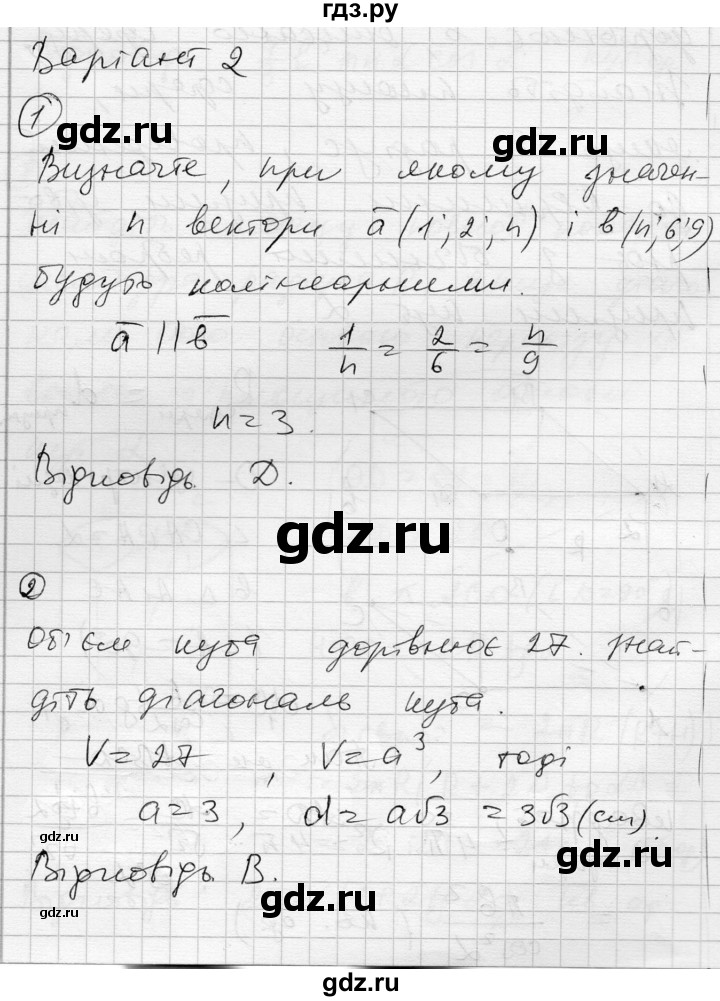 гдз.ру
Варіант 2
1
gdz.ru
gdz.ru
Визначте, при якому значен-
ні n вектори a̅ (1; 2; n) і b̅ (n; 6; 9)
будуть колінеарними.
a̅ || b̅   1/n = 2/6 = n/9
n = 3.
Відповідь D.
gdz.ru
2
Об'єм куба дорівнює 27. Знай-
діть діагональ куба.
V = 27, V = a³, тоді
a = 3, d = a√3 = 3√3 (см).
gdz.ru
gdz.ru
Відповідь B.
gdz.ru
gdz.ru
gdz.ru